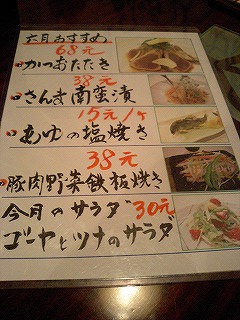 六月おすすめ
68元
かつおたたき
38元
さんま南蛮漬
15元/ケ
あゆの塩焼き
38元
豚肉野菜鉄板焼き
今月のサラダ 30元
ゴーヤとツナのサラダ